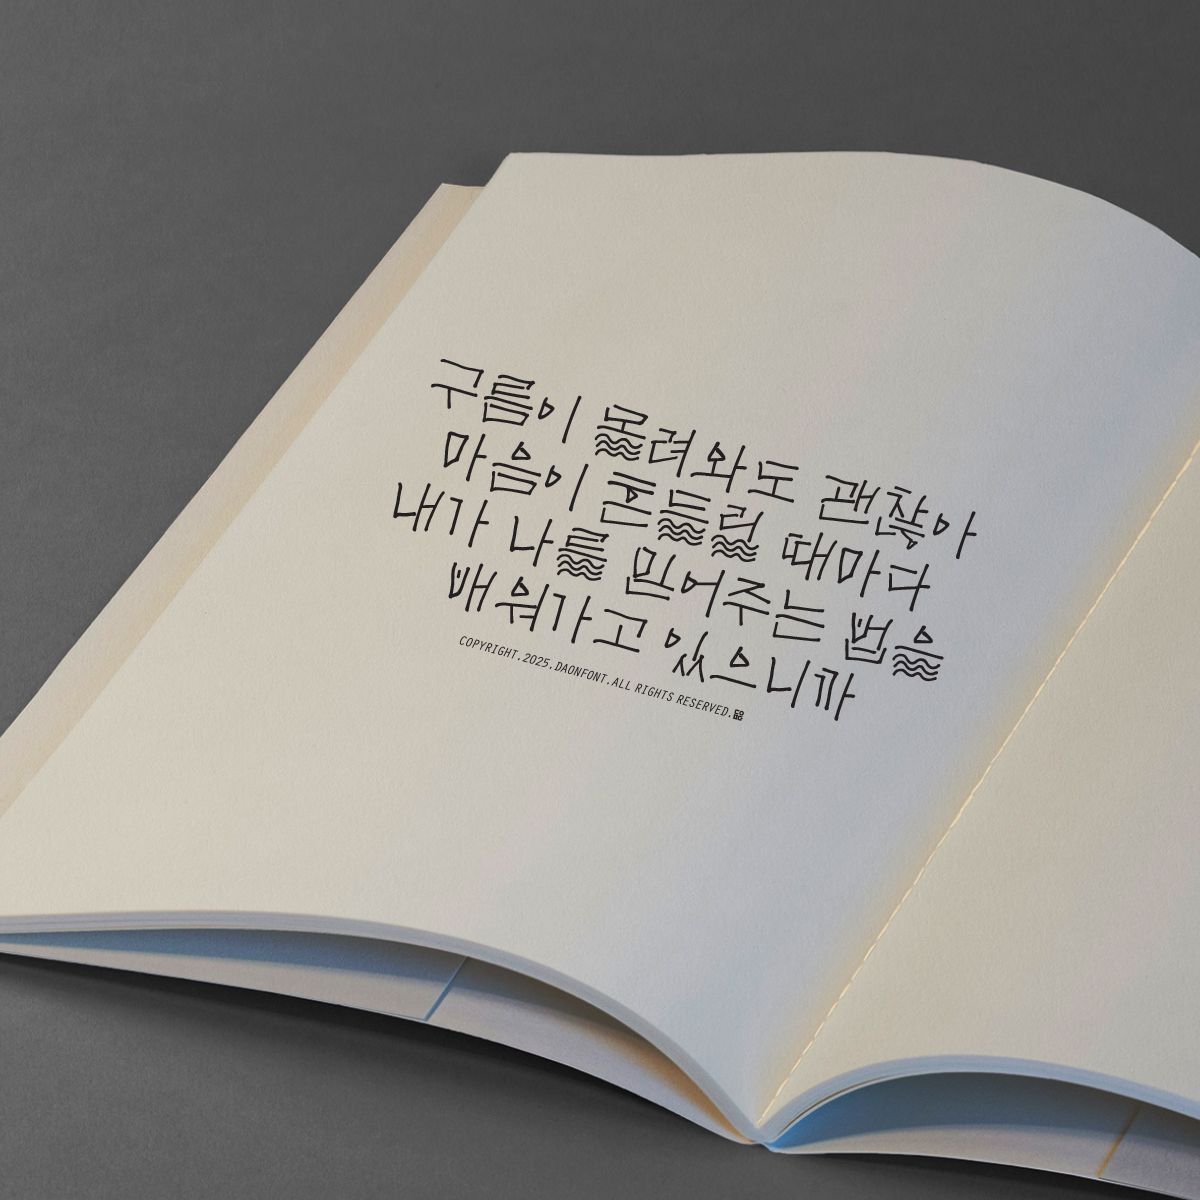 구름이 몰려와도 괜찮아
마음이 흔들릴 때마다
내가 나를 믿어주는 법을
배워가고 있으니까
COPYRIGHT.2025.DAONFONT.ALL RIGHTS RESERVED.